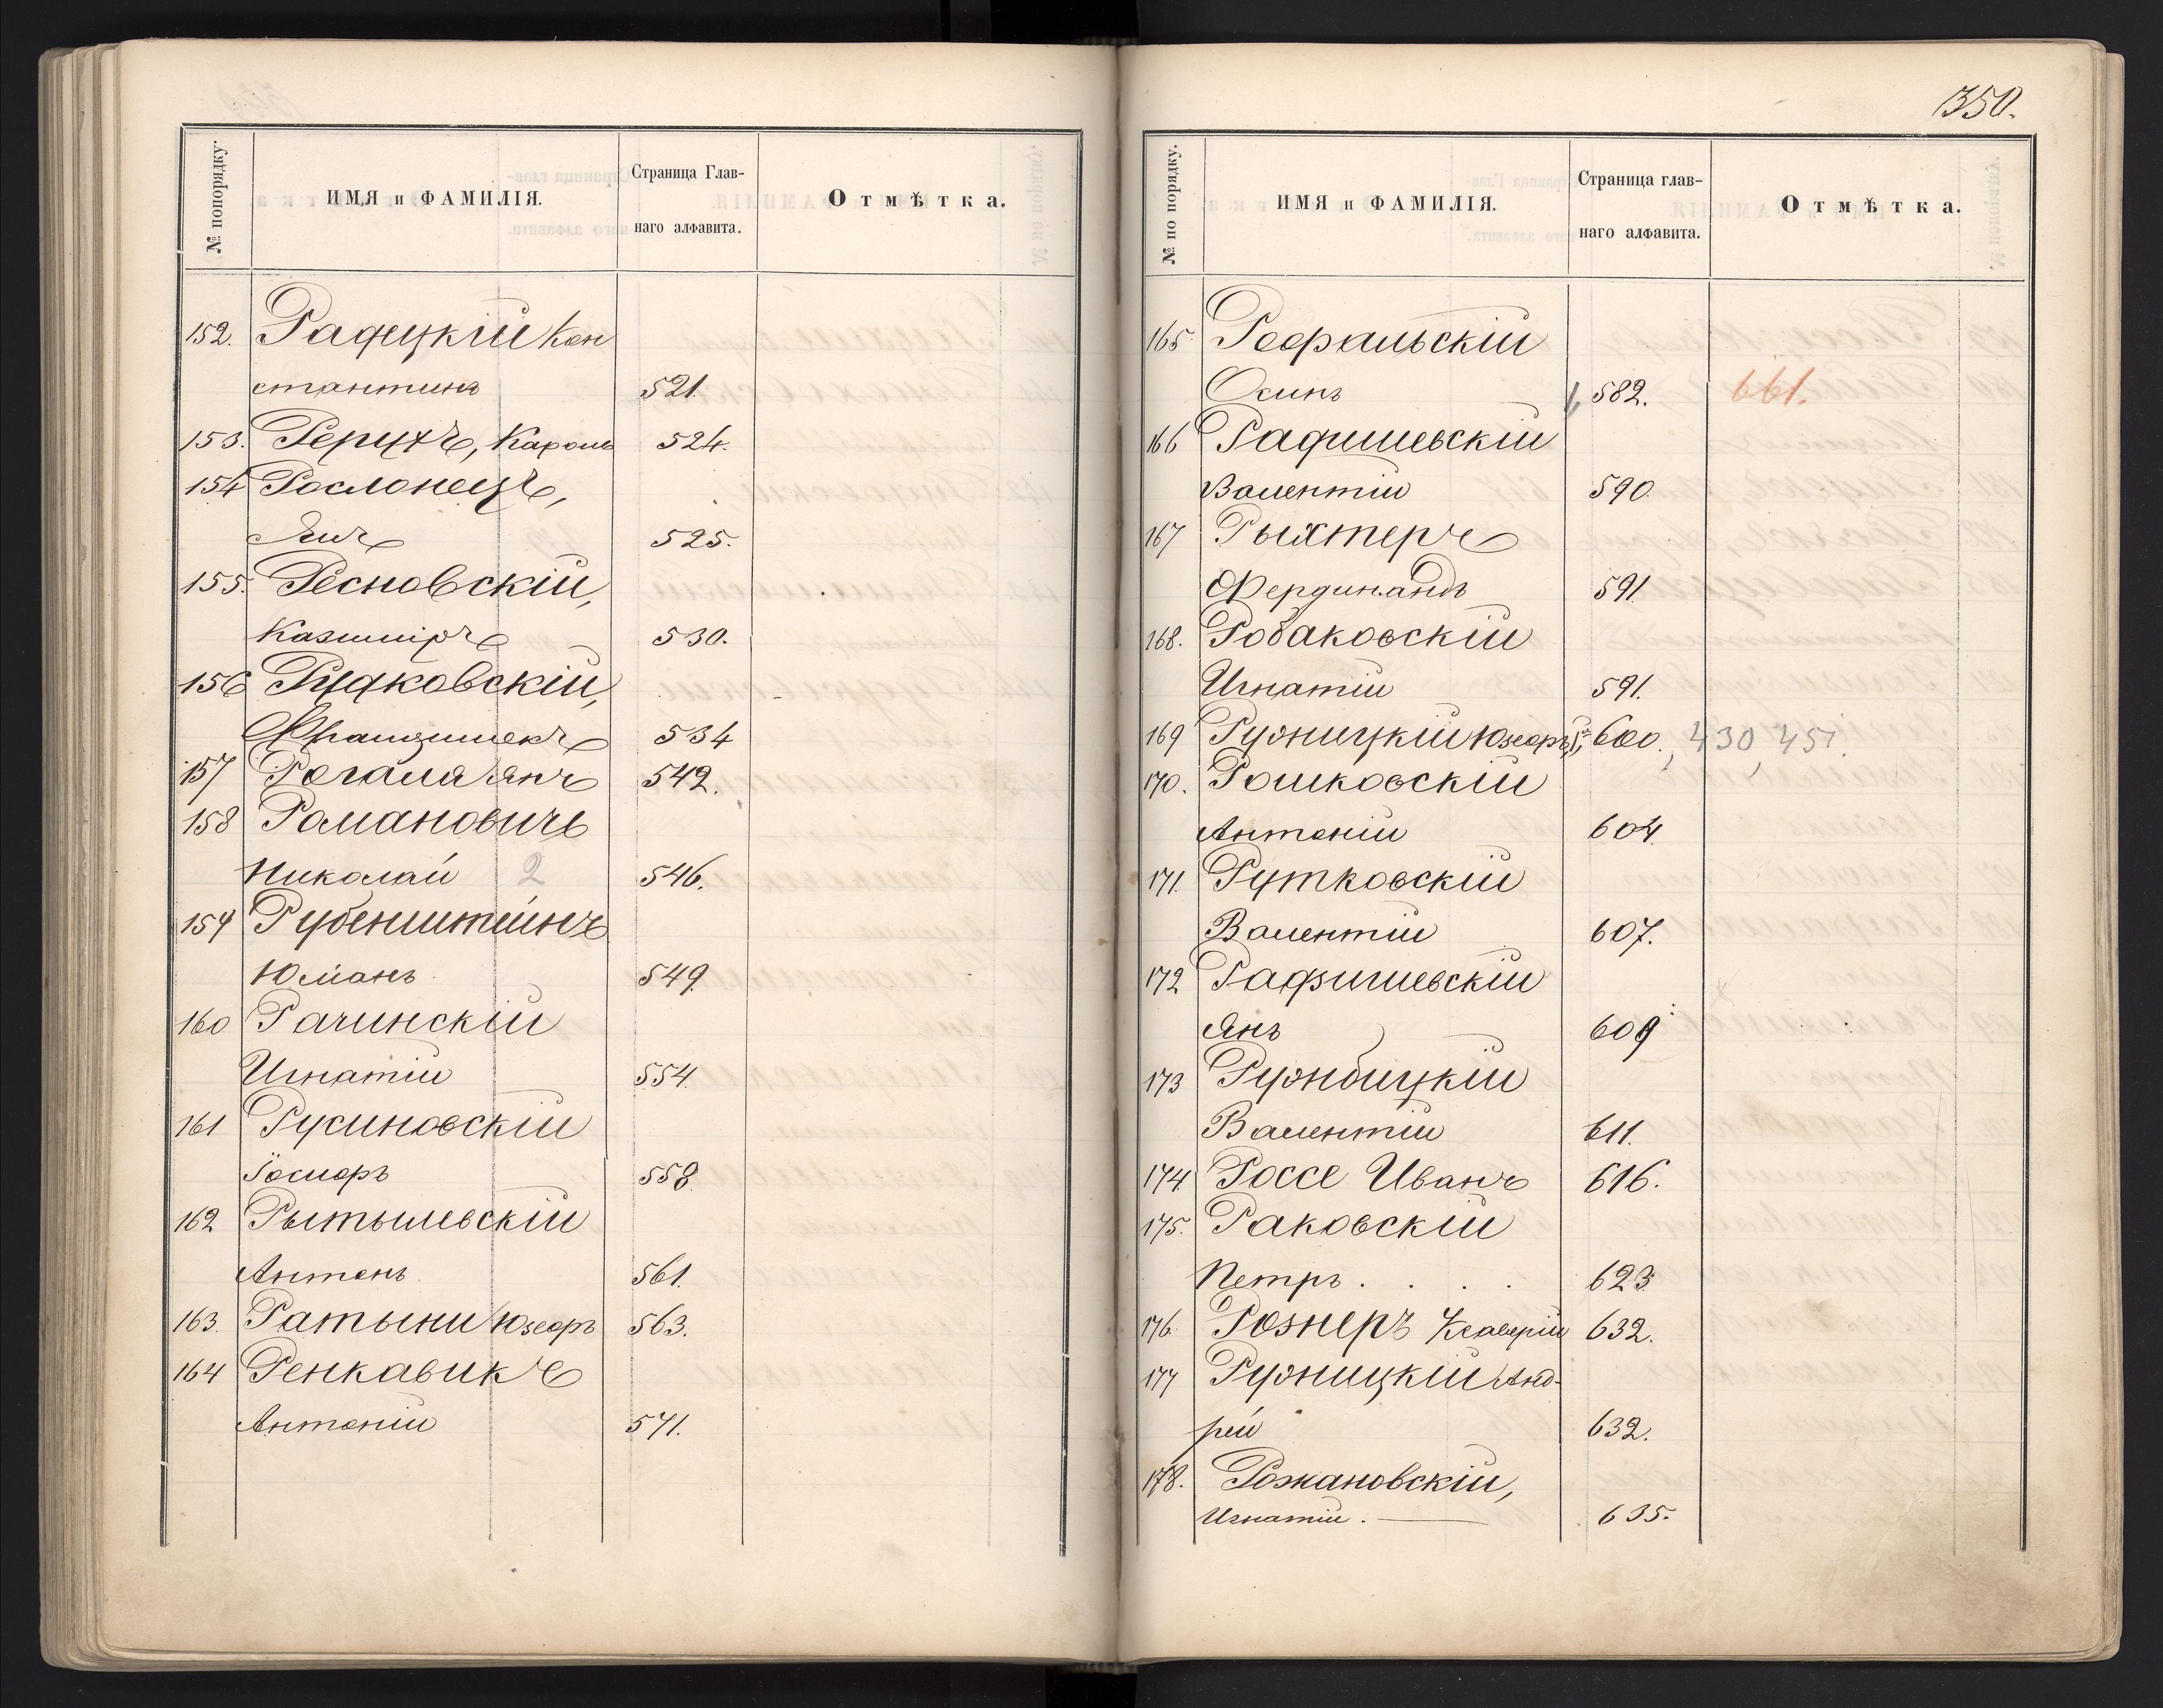 № попорядку.
ИМЯ и ФАМИЛІЯ.
Страница Глав-
наго алфавита.
Отмѣтка.
152. Радецкій Кон
стантинъ 521.
153. Рерихъ, Кароль 524.
154 Рослонецъ,
Янъ 525.
155. Ресновскій,
Казиміръ 530.
156 Рудковскій,
Францишекъ 534
157 Рогаля Янъ 542.
158 Романовичъ
Николай 2 546.
159 Рубенштейнъ
549.
160 Рачинскій
Игнатій 554.
161 Русиновскій
Іосифъ 558.
162 Рытышевскій
Антонъ 561.
163. Ратыни Юзефъ 563.
164 Ренкавикъ
Антоній 571.
350.
№ по порядку.
ИМЯ и ФАМИЛІЯ.
Страница глав-
наго алфавита.
Отмѣтка.
165
Осипъ 582. 661.
166
Валентій 590.
167 Рыхтеръ
Фердинандъ 591
168. Робаковскій
Игнатій 591.
169 Ружницкій Юзефъ 600., 430, 451.
170. Рошковскій
Антоній 604.
171. Рутковскій
Валентій 607.
172
Янъ 609
173
Валентій 611.
174 Россе Иванъ 616.
175. Раковскій
Петръ . . . . 623.
176. Рознеръ Ксаверій 632.
177 Ружницкій Анд-
рей 632.
178. Рожановскій,
Игнатій. — 635.